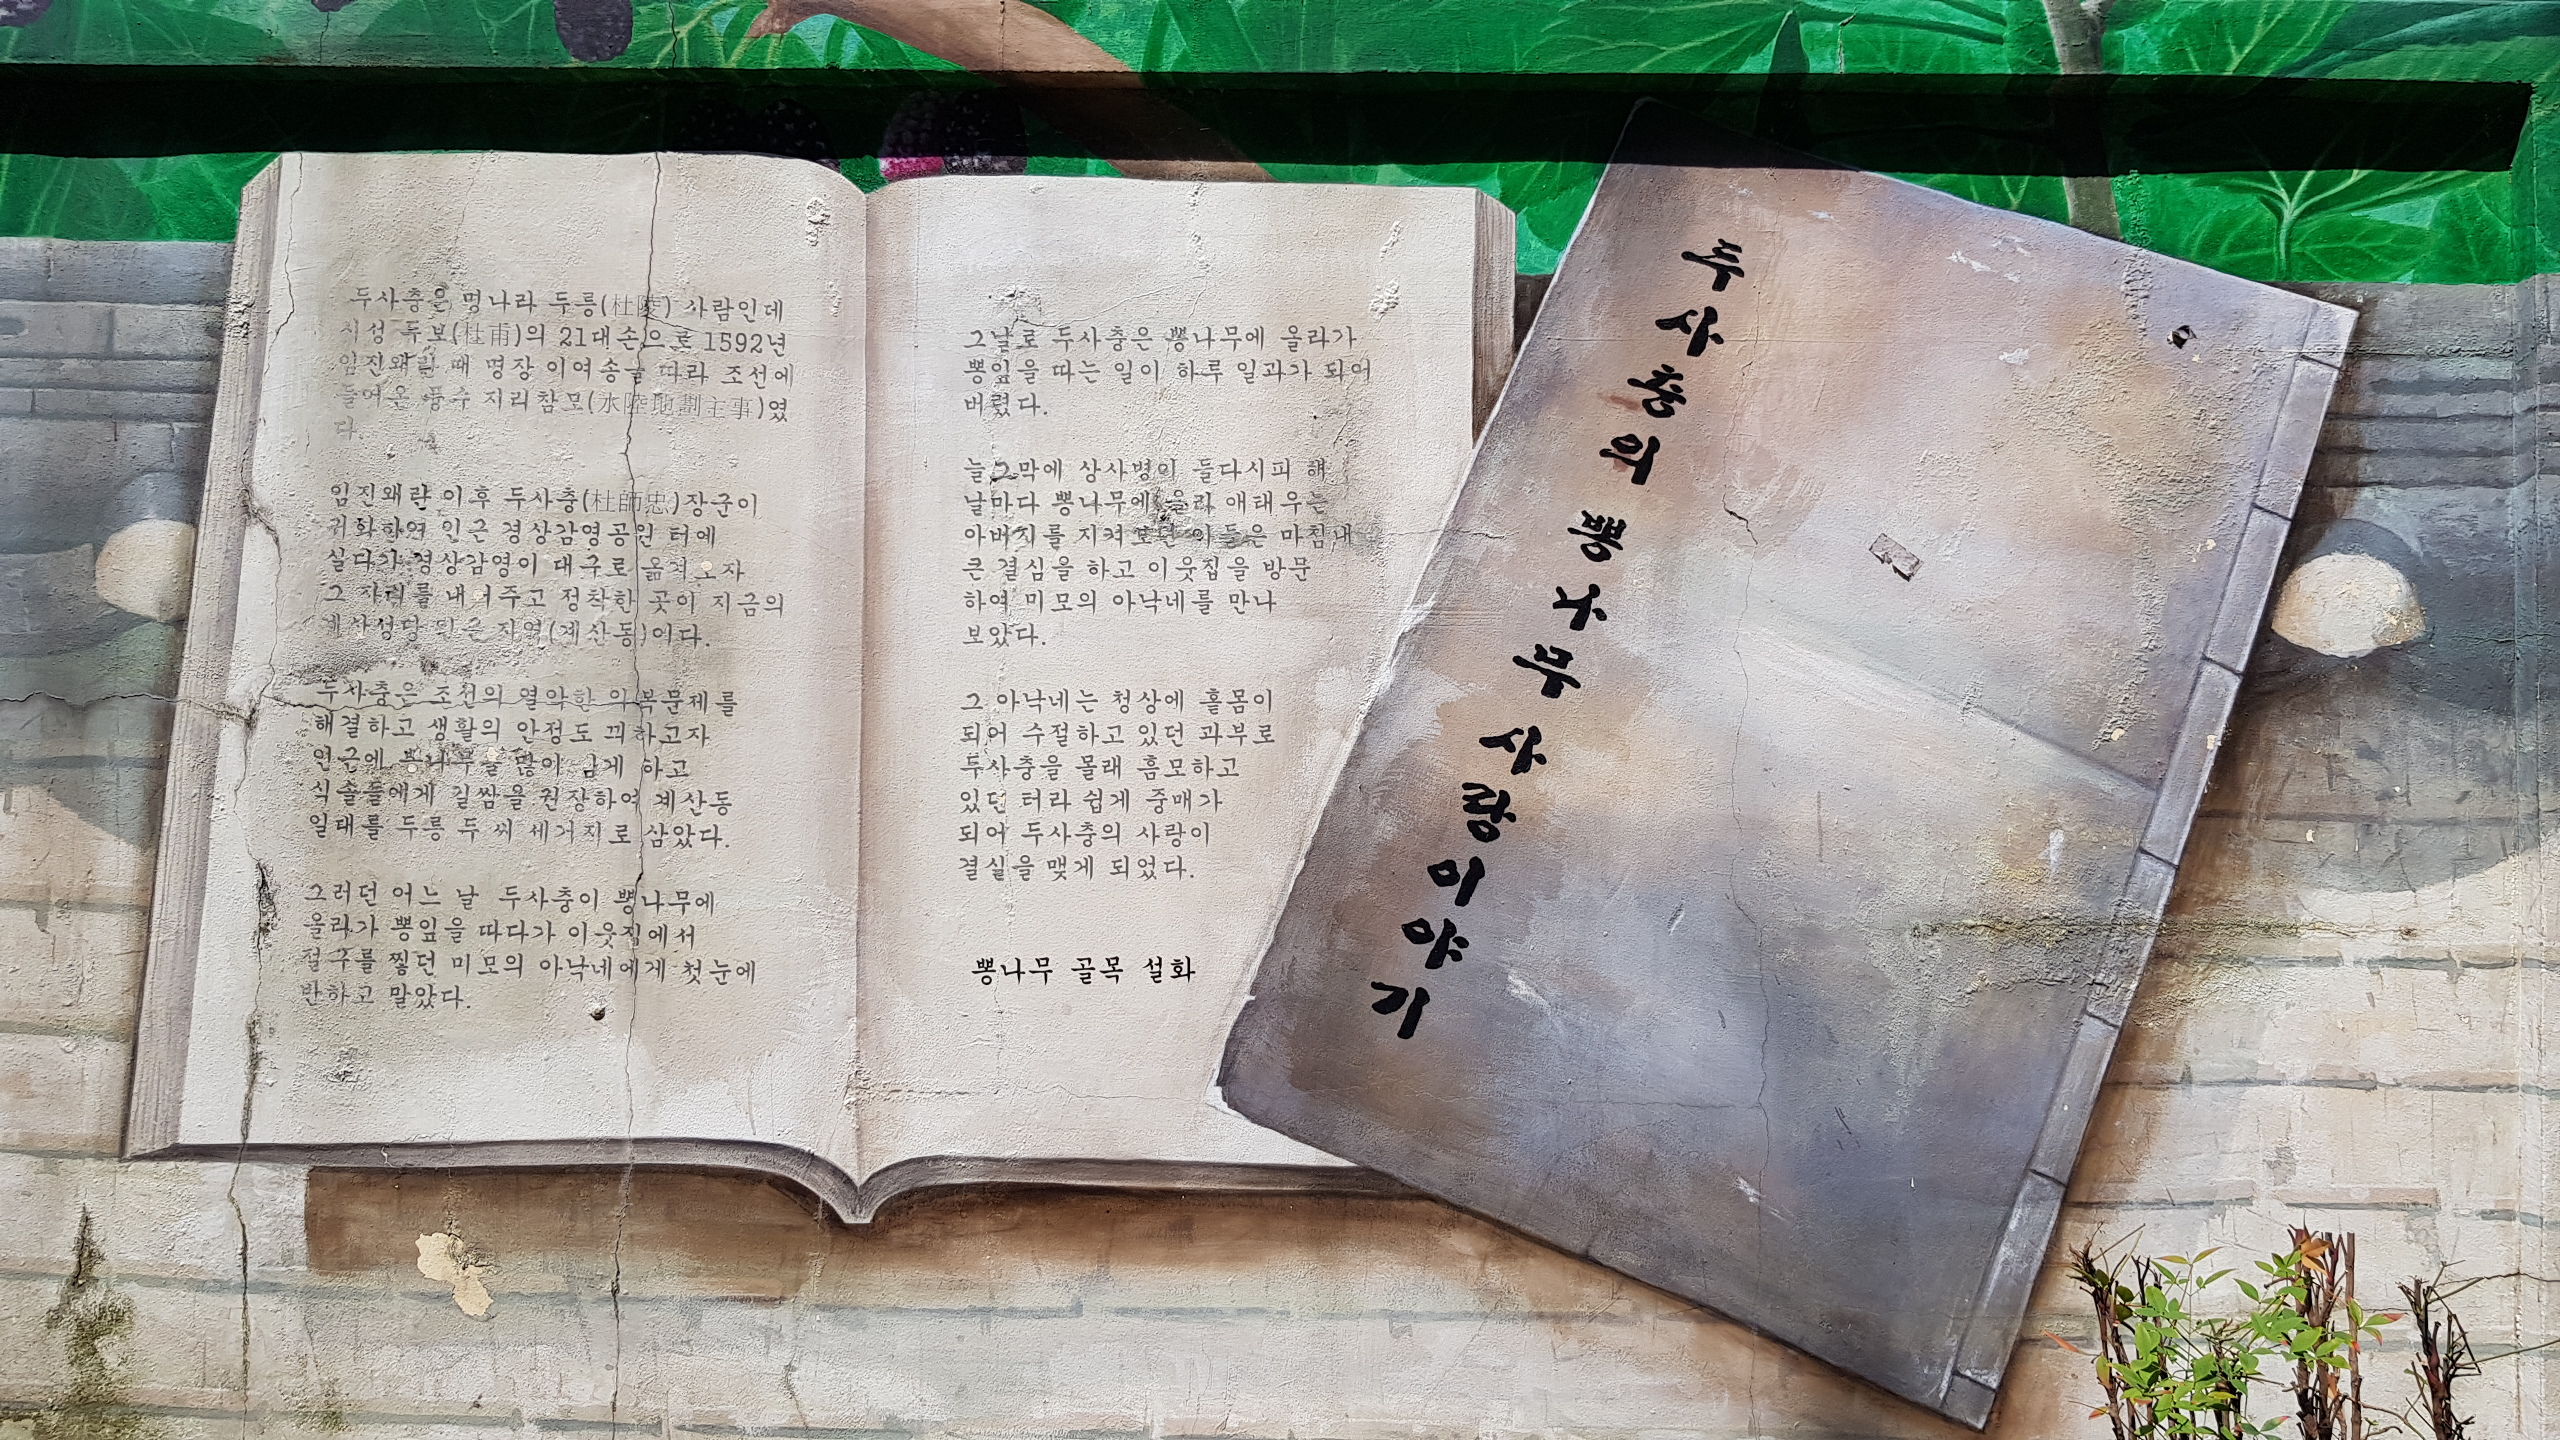 두사충은 명나라 두릉(杜陵) 사람인데
시성 두보(杜甫)의 21대손으로 1592년
임진왜란 때 명장 이여송을 따라 조선에
들어온 풍수 지리참모(水陸地劃主事)였
다.
임진왜란 이후 두사충(杜師忠)장군이
귀화하여 인근 경상감영공원 터에
살다가 경상감영이 대구로 옮겨오자
그 자리를 내어주고 정착한 곳이 지금의
계산성당 인근 지역(계산동)이다.
두사충은 조선의 열악한 의복문제를
해결하고 생활의 안정도 꾀하고자
인근에 뽕나무를 많이 심게 하고
식솔들에게 길쌈을 권장하여 계산동
일대를 두릉 두 씨 세거지로 삼았다.
그러던 어느 날 두사충이 뽕나무에
올라가 뽕잎을 따다가 이웃집에서
절구를 찧던 미모의 아낙네에게 첫눈에
반하고 말았다.
그날로 두사충은 뽕나무에 올라가
뽕잎을 따는 일이 하루 일과가 되어
버렸다.
늘그막에 상사병이 들다시피 해
날마다 뽕나무에 올라 애태우는
아버지를 지켜보던 아들은 마침내
큰 결심을 하고 이웃집을 방문
하여 미모의 아낙네를 만나
보았다.
그 아낙네는 청상에 홀몸이
되어 수절하고 있던 과부로
두사충을 몰래 흠모하고
있던 터라 쉽게 중매가
되어 두사충의 사랑이
결실을 맺게 되었다.
뽕나무 골목 설화
두사충의 뽕나무 사랑이야기